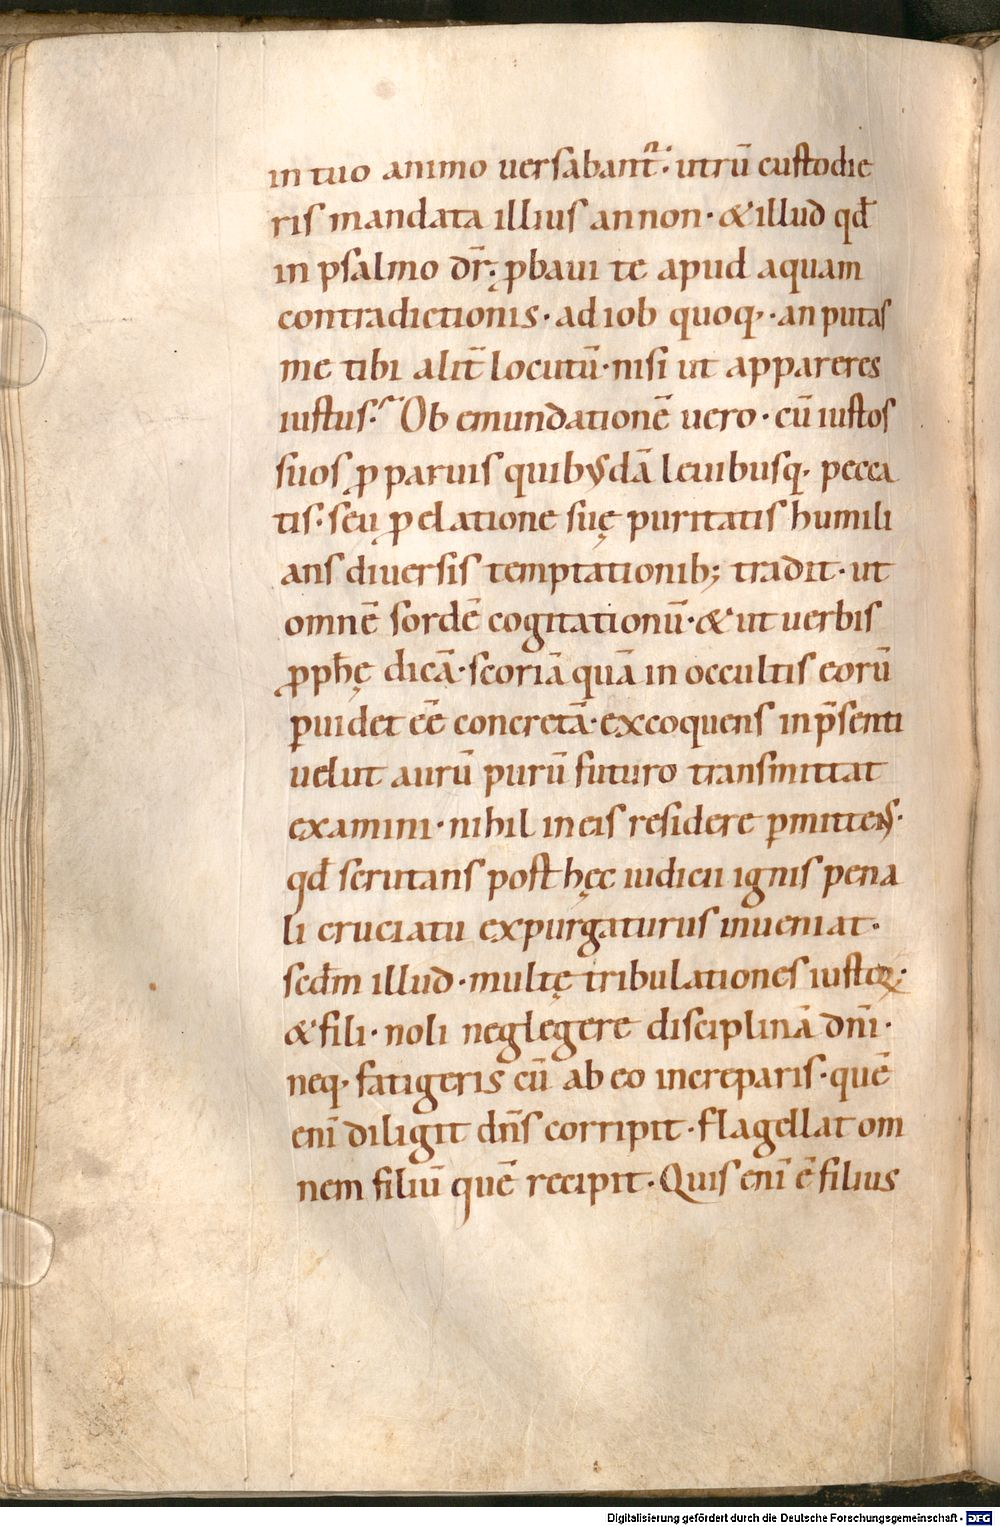 in tuo animo uersabant᷑· utrū custodie
ris mandata illius an non· & illud qđ
in psalmo dr̄· ꝓbaui te apud aquam
contradictionis· ad iob quoq·· an putas
me tibi alit̄ locutū· nisi ut appareres
iustus· Ob emundationē uero· cū iustos
suos ꝓ paruis quibusdā leuibusq· pecca
tis· seu ꝓ elatione suę puritatis humili
ans diuersis temptationib; tradit· ut
omnē sordē cogitationū· & ut uerbis
ꝓph̄ę dicā· scoriā quā in occultis eorū
ꝑuidet eē̄ concretā· excoquens in p̄senti
uelut aurū purū futuro transmittat
examini· nihil in eis residere ꝑmittens·
qđ scrutans post hęc iudicii ignis pena
li cruciatu expurgaturus inueniat·
scđm illud· multę tribulationes iustoꝝ·
& fili· noli neglegere disciplinā dn̄i·
neq· fatigeris cū ab eo increparis· quē
enī diligit dn̄s corripit· flagellat om
nem filiū quē recipit· Quis enī ē filius
Digitalisierung gefördert durch die Deutsche Forschungsgemeinschaft - DFG